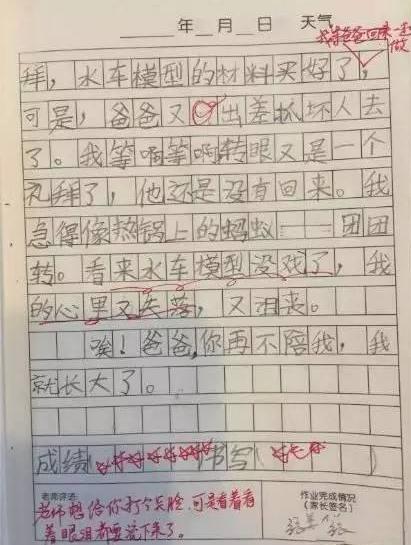 年 月 日 天气
我等爸爸回来一起做
拜，水车模型的材料买好了，
可是，爸爸又出差抓坏人去
了。我等啊等啊转眼又是一个
礼拜了，他还是没有回来。我
急得像热锅上的蚂蚁——团团
转。看来水车模型没戏了，我
的心里又失落，又沮丧。
唉！爸爸，你再不陪我，我
就长大了。
成绩（好好好好好好）书写（）
老师评语：
老师想给你打个笑脸，可是看着看
着眼泪都要流下来了。
作业完成情况
（家长签名）